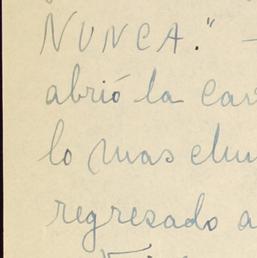 NUNCA." –
abrió la car
lo mas chu
regresado a